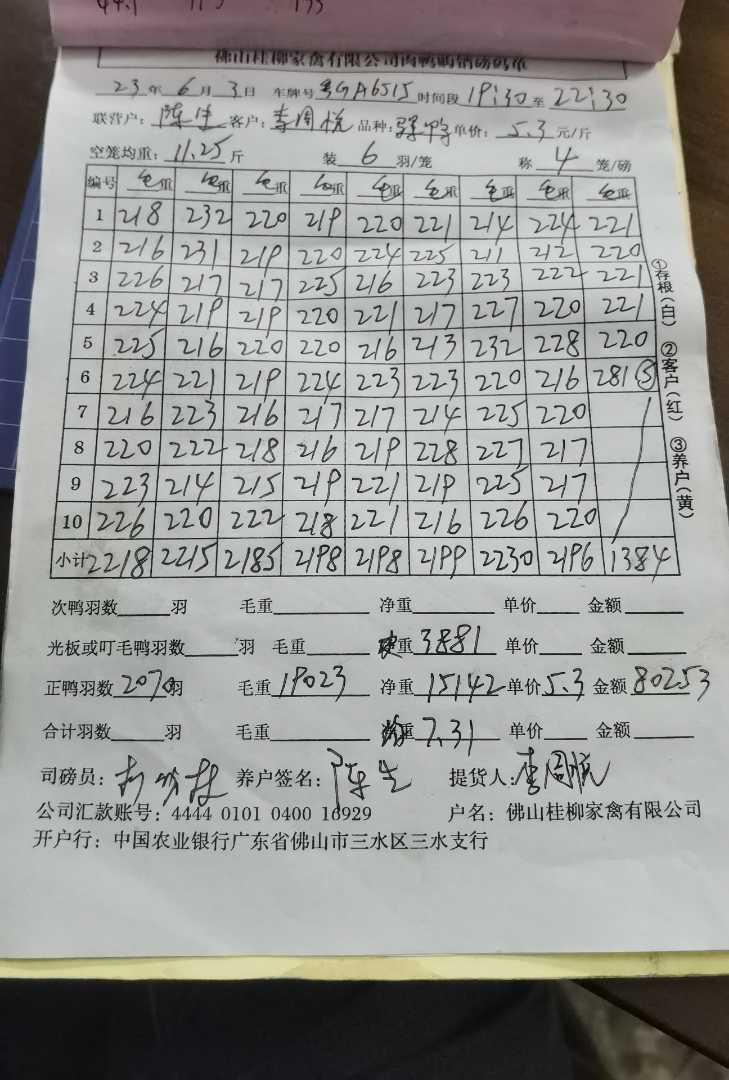 佛山桂柳家禽有限公司肉鸭购销磅码单
23年6月3日 车牌号粤GA6515时间段19:30至22:30
联营户: 客户:李周悦 品种: 单价:5.3元/斤
空笼均重:11.25斤 装6羽/笼 称4笼/磅
编号 毛重 毛重 毛重 毛重 毛重 毛重 毛重 毛重 毛重
1 218 232 220 219 220 221 214 224 221
2 216 231 219 220 224 225 211 212 220
3 226 217 217 225 216 223 223 222 221
4 224 219 219 220 221 217 227 220 221
5 225 216 220 220 216 213 232 228 220
6 224 221 219 224 223 223 220 216 281⑤
7 216 223 216 217 217 214 225 220
8 220 222 218 216 219 228 227 217
9 223 214 215 219 221 219 225 217
10 226 220 222 218 221 216 226 220
小计 2218 2215 2185 2198 2198 2199 2230 2196 1384
①存根(白) ②客户(红) ③养户(黄)
次鸭羽数 羽 毛重 净重 单价 金额
光板或叮毛鸭羽数 羽 毛重 重3881 单价 金额
正鸭羽数2070羽 毛重19023 净重15142单价5.3 金额80253
合计羽数 羽 毛重 均重7.31 单价 金额
司磅员: 养户签名: 提货人:李周悦
公司汇款账号:4444 0101 0400 16929 户名:佛山桂柳家禽有限公司
开户行:中国农业银行广东省佛山市三水区三水支行